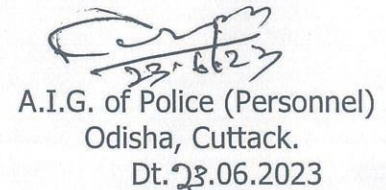 23.6.23
A.I.G. of Police (Personnel)
Odisha, Cuttack.
Dt.23.06.2023